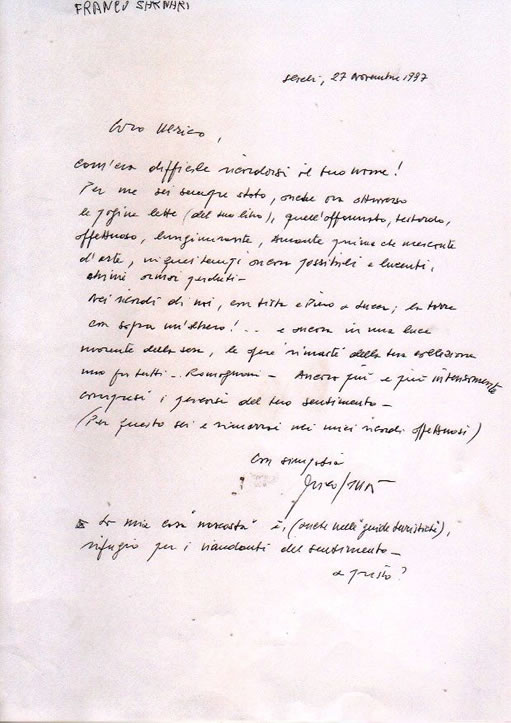 FRANCO SARNARI
Scicli, 27 Novembre 1997
Caro Ulrico,
com'era difficile ricordarsi il tuo nome!
Per me sei sempre stato, anche ora attraverso
le pagine lette (del tuo libro), quell'affamato, testardo,
affettuoso, lungimirante, Amante prima che mercante
d'arte, in quei tempi ancora possibili e lucenti,
ahimè ormai perduti -
Nei ricordi di noi, con Titta e Piero a Lucca; la torre
con sopra un'albero! .. e ancora in una luce
morente della sera, le opere rimaste della tua collezione
uno fra tutti - Romagnoni - Ancora più e più intensamente
compresi i percorsi del tuo sentimento -
(Per questo sei e rimarrai nei miei ricordi affettuosi)
con simpatia
La mia casa "nascosta" è, (anche nelle "guide turistiche"),
rifugio per i viandanti del sentimento -
a presto?